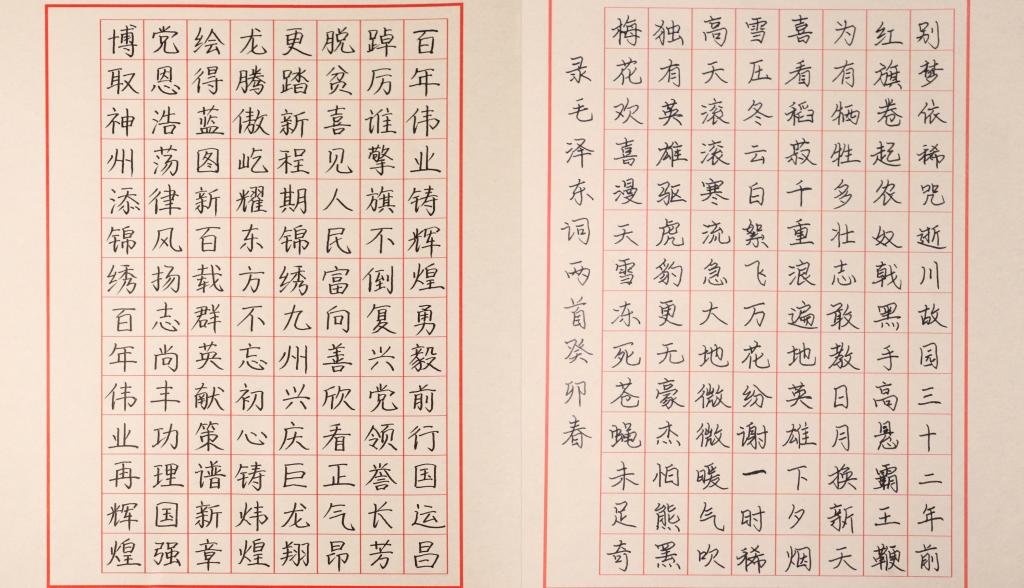 别梦依稀咒逝川故园三十二年前
红旗卷起农奴戟黑手高悬霸王鞭
为有牺牲多壮志敢教日月换新天
喜看稻菽千重浪遍地英雄下夕烟
雪压冬云白絮飞万花纷谢一时稀
高天滚滚寒流急大地微微暖气吹
独有英雄驱虎豹更无豪杰怕熊罴
梅花欢喜漫天雪冻死苍蝇未足奇
录毛泽东词两首癸卯春
百年伟业铸辉煌勇毅前行国运昌
踔厉谁擎旗不倒复兴党领誉长芳
脱贫喜见人民富向善欣看正气昂
更踏新程期锦绣九州兴庆巨龙翔
龙腾傲屹耀东方不忘初心铸炜煌
绘得蓝图新百载群英献策谱新章
党恩浩荡律风扬志尚丰功理国强
博取神州添锦绣百年伟业再辉煌